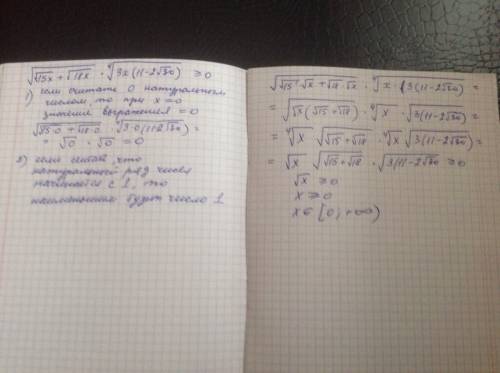 √(√15x + √18x) · ⁴√(3x(11-2√30)) ≥ 0
1) если считать 0 натуральным
числом, то при x=0
значение выражения = 0
√(√15·0 + √18·0) · ⁴√(3·0(11-2√30)) =
= √0 · √0 = 0
2) если считать, что
натуральный ряд чисел
начинается с 1, то
наименьшим будет число 1
√(√15·√x + √18·√x) · ⁴√(x·3(11-2√30)) =
= √(√x(√15 + √18)) · ⁴√x · √(3(11-2√30)) =
= ⁴√x · √(√15+√18) · ⁴√x · √(3(11-2√30)) =
= √x · √(√15+√18) · √(3(11-2√30)) ≥ 0
√x ≥ 0
x ≥ 0
x∈[0;+∞)